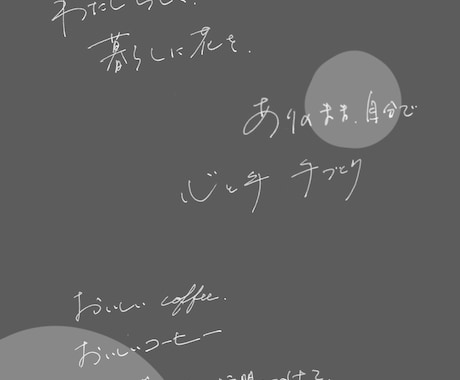 わたしらしく、
暮らしに花を.
ありのまま.自分で
心と手 手づくり
おいしい coffee.
おいしいコーヒー